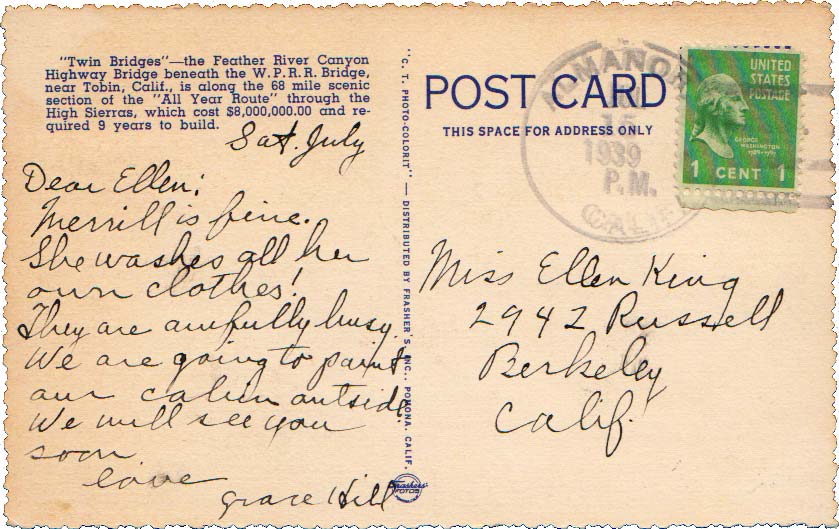 "Twin Bridges"—the Feather River Canyon
Highway Bridge beneath the W.P.R.R. Bridge,
near Tobin, Calif., is along the 68 mile scenic
section of the "All Year Route" through the
High Sierras, which cost $8,000,000.00 and re-
quired 9 years to build.
Sat. July
Dear Ellen:
Merrill is fine.
She washes all her
own clothes!
They are awfully busy.
We are going to paint
our cabin outside.
We will see you
soon
love
Grace Hill
"C. T. PHOTO-COLORIT" — DISTRIBUTED BY FRASHER'S INC., POMONA, CALIF.
Frashers
FOTOS
POST CARD
THIS SPACE FOR ADDRESS ONLY
15
1939
P.M.
CALIF
UNITED
STATES
POSTAGE
GEORGE
WASHINGTON
1789-1797
1 CENT 1
Miss Ellen King
2942 Russell
Berkeley
Calif.